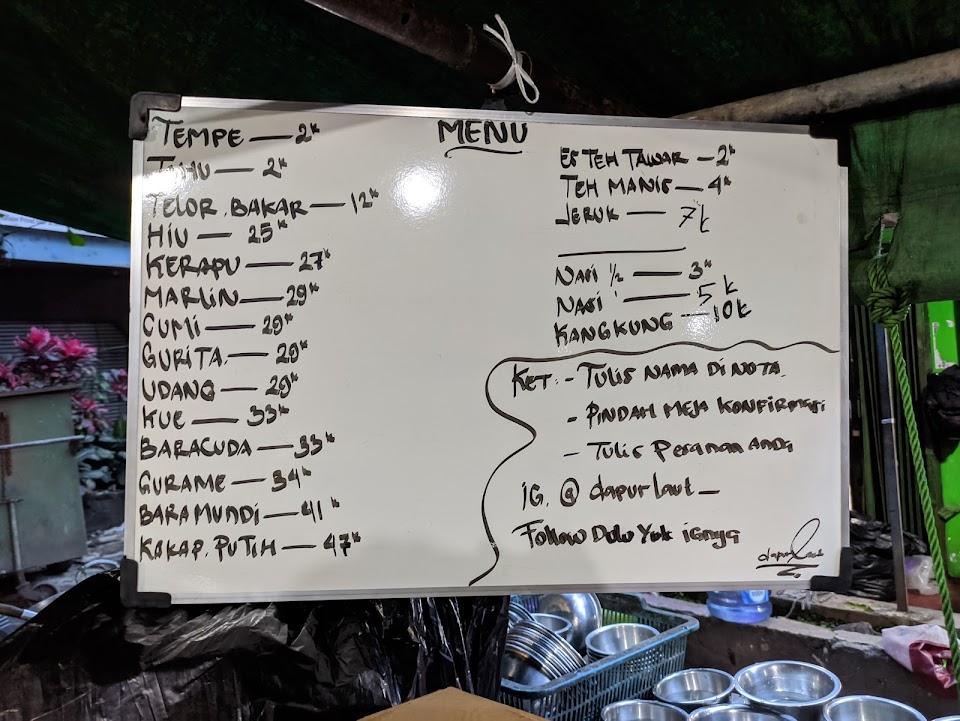 MENU
TEMPE — 2K
TAHU — 2K
TELOR. BAKAR — 12K
HIU — 25K
KERAPU — 27K
MARLIN — 29K
CUMI — 29K
GURITA. — 29K
UDANG — 29K
KUE — 33K
BARACUDA — 33K
GURAME — 34K
BARAMUNDI — 41K
KAKAP. PUTIH — 47K
ES TEH TAWAR — 2K
TEH MANIS — 4K
JERUK — 7K
NASI 1/2 — 3K
NASI 1 — 5K
KANGKUNG — 10K
KET: - TULIS NAMA DI NOTA.
- PINDAH MEJA KONFIRMASI
- TULIS PESANAN ANDA
IG. @ dapurlaut_
Follow Dulu Yuk iGnya
dapurlaut